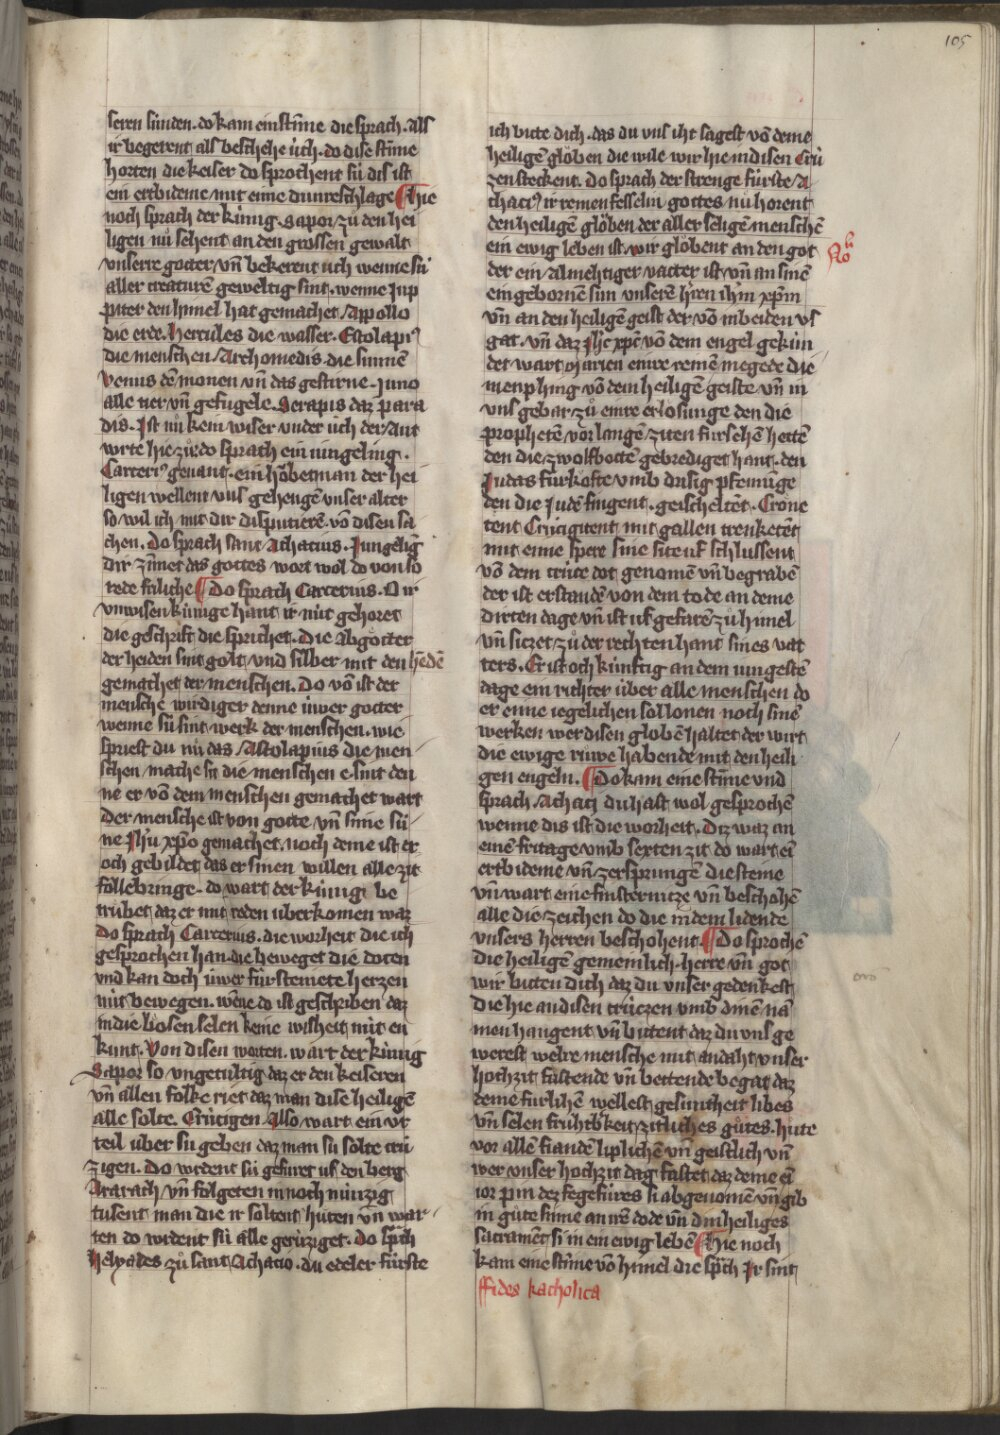 105
seren sunden. do kam ein stīme die sprach. Als
ir begerent als beschehe úch. do dise stīme
horten die keiser do sprochent sú dis ist
ein ertbideme mit eime dunreschlage Hie
noch sprach der kúnig. Sapor zů den hei
ligen nů sehent an den grossen gewalt
unserre gotter vn̄ bekerent úch wenne sú
aller creaturē geweltig sint. wenne Jup
piter den himel hat gemachet Appollo
die erde. Hercules die wasser. Escolapiꝰ
die menschen Archomedis. die sinnē
Venus dē monen vn̄ das gestirne. Juno
alle tier vn̄ gefúgele. Serapis daz para
dis. Ist nů kein wiser under úch der Ant
wrte hie zů. do sprach ein iungeling.
Carceriꝰ genant. ein hŏbetman der hei
ligen wellent uns gehengē unser alter
so wil ich mit dir disputierē. vō disen sa
chen. Do sprach sant Achatius. Jungelīg
dir zimet das gottes wort wol do von so
rede frilīche Do sprach Carcerius. O ir
unwisen kúnige hant ir nút gehoret
die geschrift die sprichet. Die abgŏtter
der heiden sint golt und silber mit den hēdē
gemachet der menschen. Do vō ist der
mensche wirdiger denne úwer gotter
wenne sú sint werk der menschen. wie
sprichest du nů das Astolapius die men
schen mache sit die menschen e. sint den
ne er vō dem menschen gemachet wart
Der mensche ist von gotte vn̄ sime sú
ne Jhū xp̄o gemachet. noch deme ist er
och gebildet das er sinen willen alle zit
follebringe. do wart der kúnig be
trúbet daz er mit reden úberkomen waz
Do sprach Carcerius. die worheit die ich
gesprochen han. die beweget die doten
und kan doch úwer fúrsteinete herzen
nút bewegen. wēne do ist geschriben daz
in die bosen selen keine wisheit nút en
kunt. Von disen worten. wart der kúnig
Sapor so ungetultig daz er den keiseren
vn̄ allen folke riet daz man dise heiligē
alle solte. Crúcigen Also wart ein ur
teil úber sú geben daz man sú solte crú
zigen. Do wrdent sú gefúret uf den berg
Ararach vn̄ folgeten in noch núnzig
tusent man die ir soltent hůten vn̄ war
ten do wrdent sú alle gecrúziget. Do sp̄ch
Helyades zů sant Achacio. du edeler fúrste
ich bitte dich. das du uns iht sagest vō deme
heiligē glŏben die wile wir hie in disen Crú
zen steckent. Do sprach der strenge fúrste A
chaciꝰ ir reinen fesseln gottes nů horent
den heiligē glŏben der aller seligē menschē
ein ewig leben ist. wir glŏbent an den got
der ein Almehtiger vatter ist vn̄ an sinē
eingebornē sun unserē h̄ren ih̄m xp̄m
vn̄ an den heiligē geist der vō in beiden us
gat. vn̄ daz Jh̄c xp̄c vō dem engel gekún
det wart Marien einre reinē megede die
in enphing vō dem heiligē geiste vn̄ in
uns gebar zů einre erlosunge den die
prophetē vor langē ziten fúrsehē hettē
den die zwolfbottē gebrediget hant. den
Judas fúrkofte umb drisig pfenninge
den die Judē fingent. geischeltēt. Crone
tent Crúcigitent mit gallen trenketēt
mit eime spere sine site uf schlussent
vō dem crúce dot genomē vn̄ begrabē
der ist erstandē von dem tode an deme
dirten dage vn̄ ist uf gefarē zů himel
vn̄ siczet zů der rechten hant sines vat
ters. Er ist och kúnftig an dem iungestē
dage ein richter úber alle menschen do
er eime iegelichen sol lonen noch sinē
werken wer disen globē haltet der wirt
die ewige růwe habende mit den heili
gen engeln. Do kam eine stīme und
sprach. Achaci du hast wol gesprochē
wenne dis ist die worheit. Diz waz an
eimē fritage umb sexten zit do wart ei
ertbideme vn̄ zersprungē die steine
vn̄ wart eine finsternicze vn̄ beschohē
alle die zeichen do die in dem lidende
unsers herren beschohent. Do sprochē
die heiligē gemeinlich. herre vn̄ got
wir bitten dich daz du unser gedenkest
die hie an disen crúczen umb dinē na
men hangent vn̄ bittent daz du uns ge
werest welre mensche mit andaht unser
hochzit fastende vn̄ bettende begat daz
deme fúrlihē wellest gesuntheit libes
vn̄ selen fruhtbkeit zitliches gůtes. hůte
vor allē fiandē liplichē vn̄ geistlich vn̄
wer unser hochzit dag fastet daz deme ei
ior pin dez fegefúres si abgenomē vn̄ gib
in gůte sinne an irē dode vn̄ din heiliges
sacramēt si in ein ewig lebē Hie noch
kam eine stīme vō himel die sp̄ch Jr sint
ffides katholica